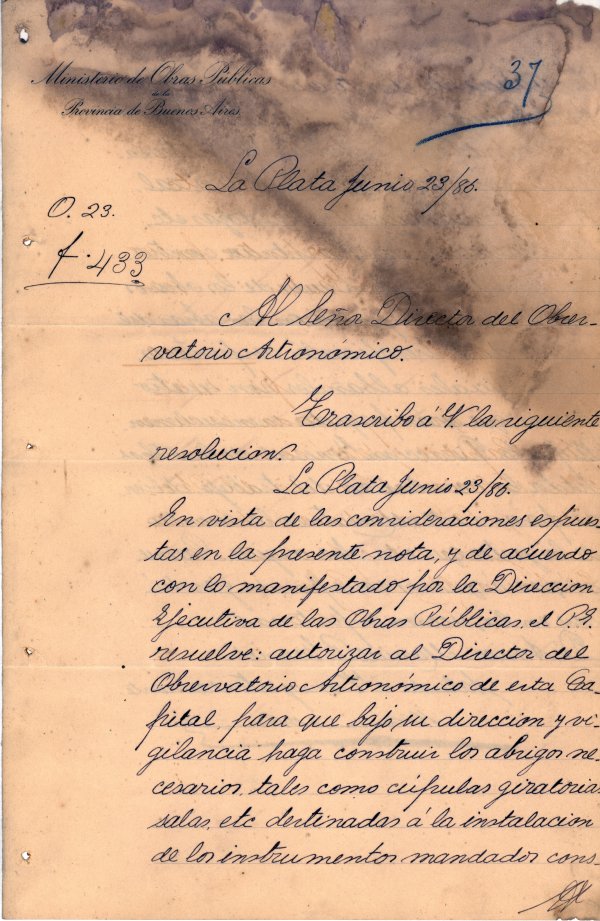 37
Ministerio de Obras Públicas
de la
Provincia de Buenos Aires
La Plata Junio 23/86.
O. 23.
f. 433
Al Señor Director del Obser-
vatorio Astronómico.
Trascribo á V. la siguiente
resolucion.
La Plata Junio 23/86.
En vista de las consideraciones espues-
tas en la presente nota, y de acuerdo
con lo manifestado por la Direccion
Ejecutiva de las Obras Públicas, el P.E.
resuelve: autorizar al Director del
Observatorio Astronómico de esta Ca-
pital, para que bajo su direccion y vi-
gilancia haga construir los abrigos ne-
cesarios, tales como cúpulas giratorias
salas, etc destinadas á la instalacion
de los instrumentos mandados cons-